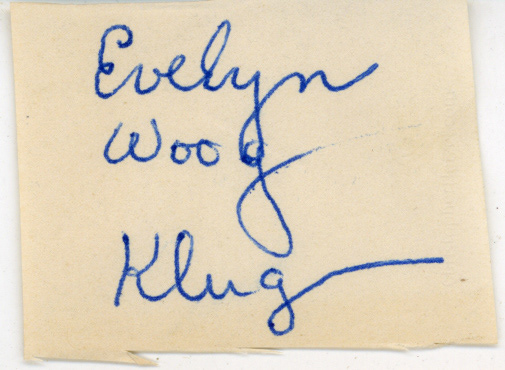 Evelyn
Woog
Klug